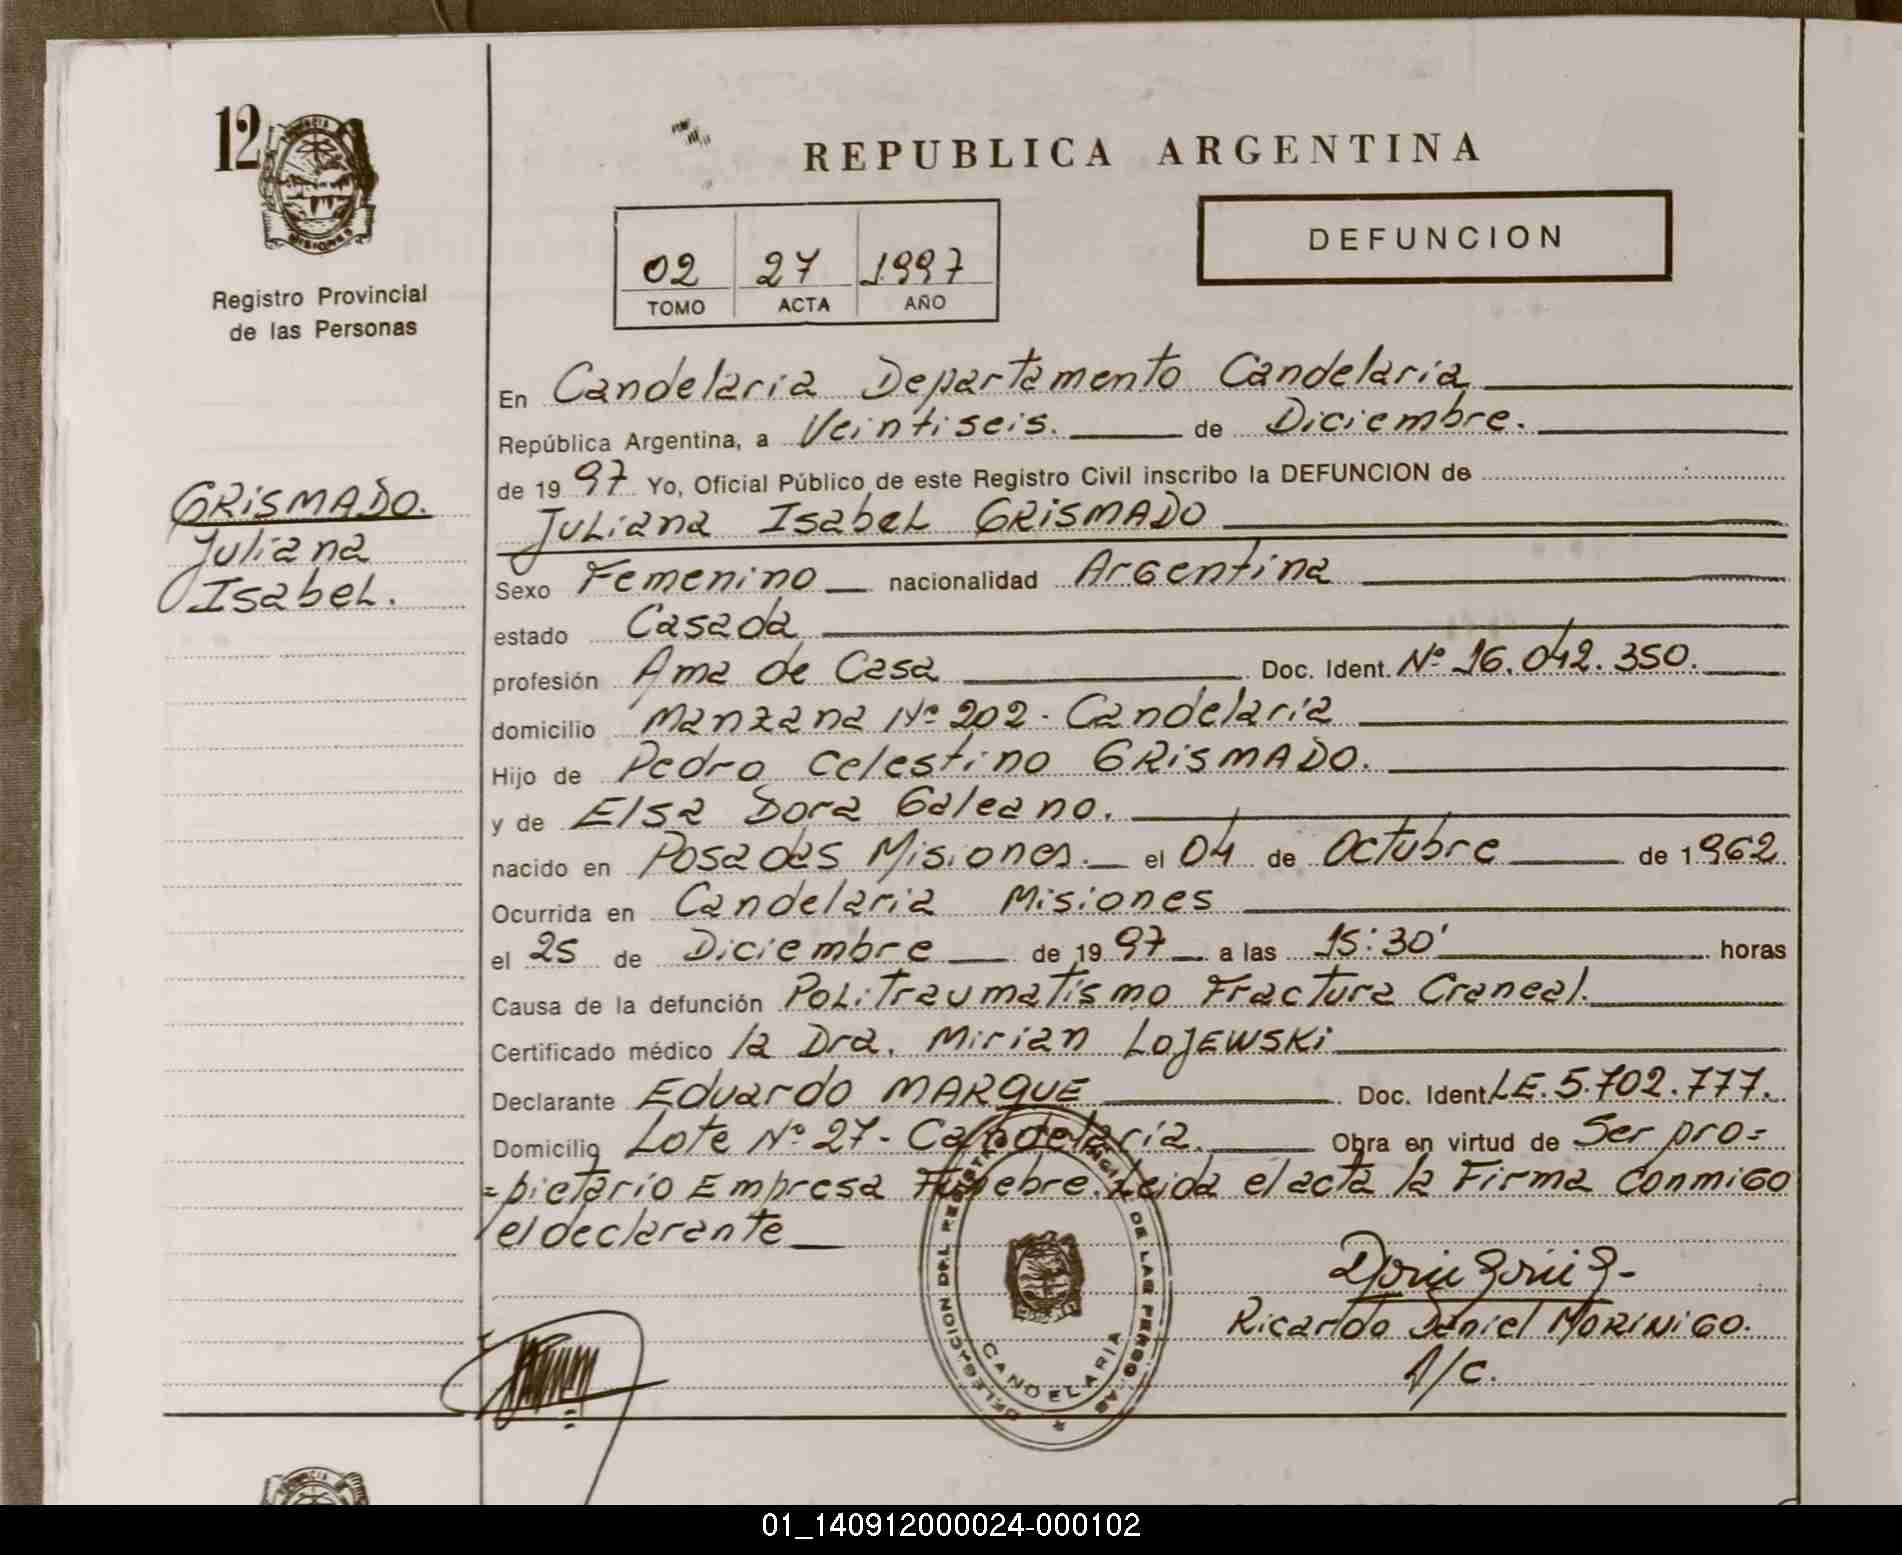 12
PROVINCIA
MISIONES
Registro Provincial
de las Personas
GRISMADO.
Juliana
Isabel.
REPUBLICA ARGENTINA
02 27 1997
TOMO ACTA AÑO
DEFUNCION
En Candelaria Departamento Candelaria
República Argentina, a Veintiseis. de Diciembre.
de 1997 Yo, Oficial Público de este Registro Civil inscribo la DEFUNCION de
Juliana Isabel GRISMADO
Sexo Femenino nacionalidad Argentina
estado Casada
profesión Ama de Casa Doc. Ident. Nº 16.042.350.
domicilio Manzana Nº 202 - Candelaria
Hijo de Pedro Celestino GRISMADO.
y de Elsa Dora Galeano.
nacido en Posadas Misiones. el 04 de Octubre de 1962
Ocurrida en Candelaria Misiones
el 25 de Diciembre de 1997 a las 15:30' horas
Causa de la defunción Politraumatismo Fractura Craneal.
Certificado médico la Dra. Mirian LOJEWSKI
Declarante Eduardo MARQUE Doc. Ident LE. 5.702.777.
Domicilio Lote Nº 27 - Candelaria. Obra en virtud de Ser pro=
=pietario Empresa Fúnebre. Leida el acta la Firma Conmigo
el declarante
DELEGACION DEL REGISTRO PROVINCIAL DE LAS PERSONAS
CANDELARIA
Ricardo Daniel MORINIGO.
A/C.
PROVINCIA
01_140912000024-000102